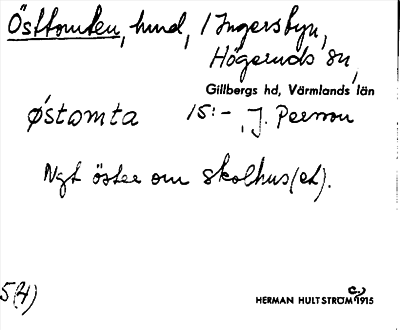 Östtomten, hund, / Ingersbyn,
Högeruds sn,
Gillbergs hd, Värmlands län
ǿstomta 15:-, J. Persson
Ngt öster om skolhus(et).
5(4)
HERMAN HULTSTRÖM (c.) 1915